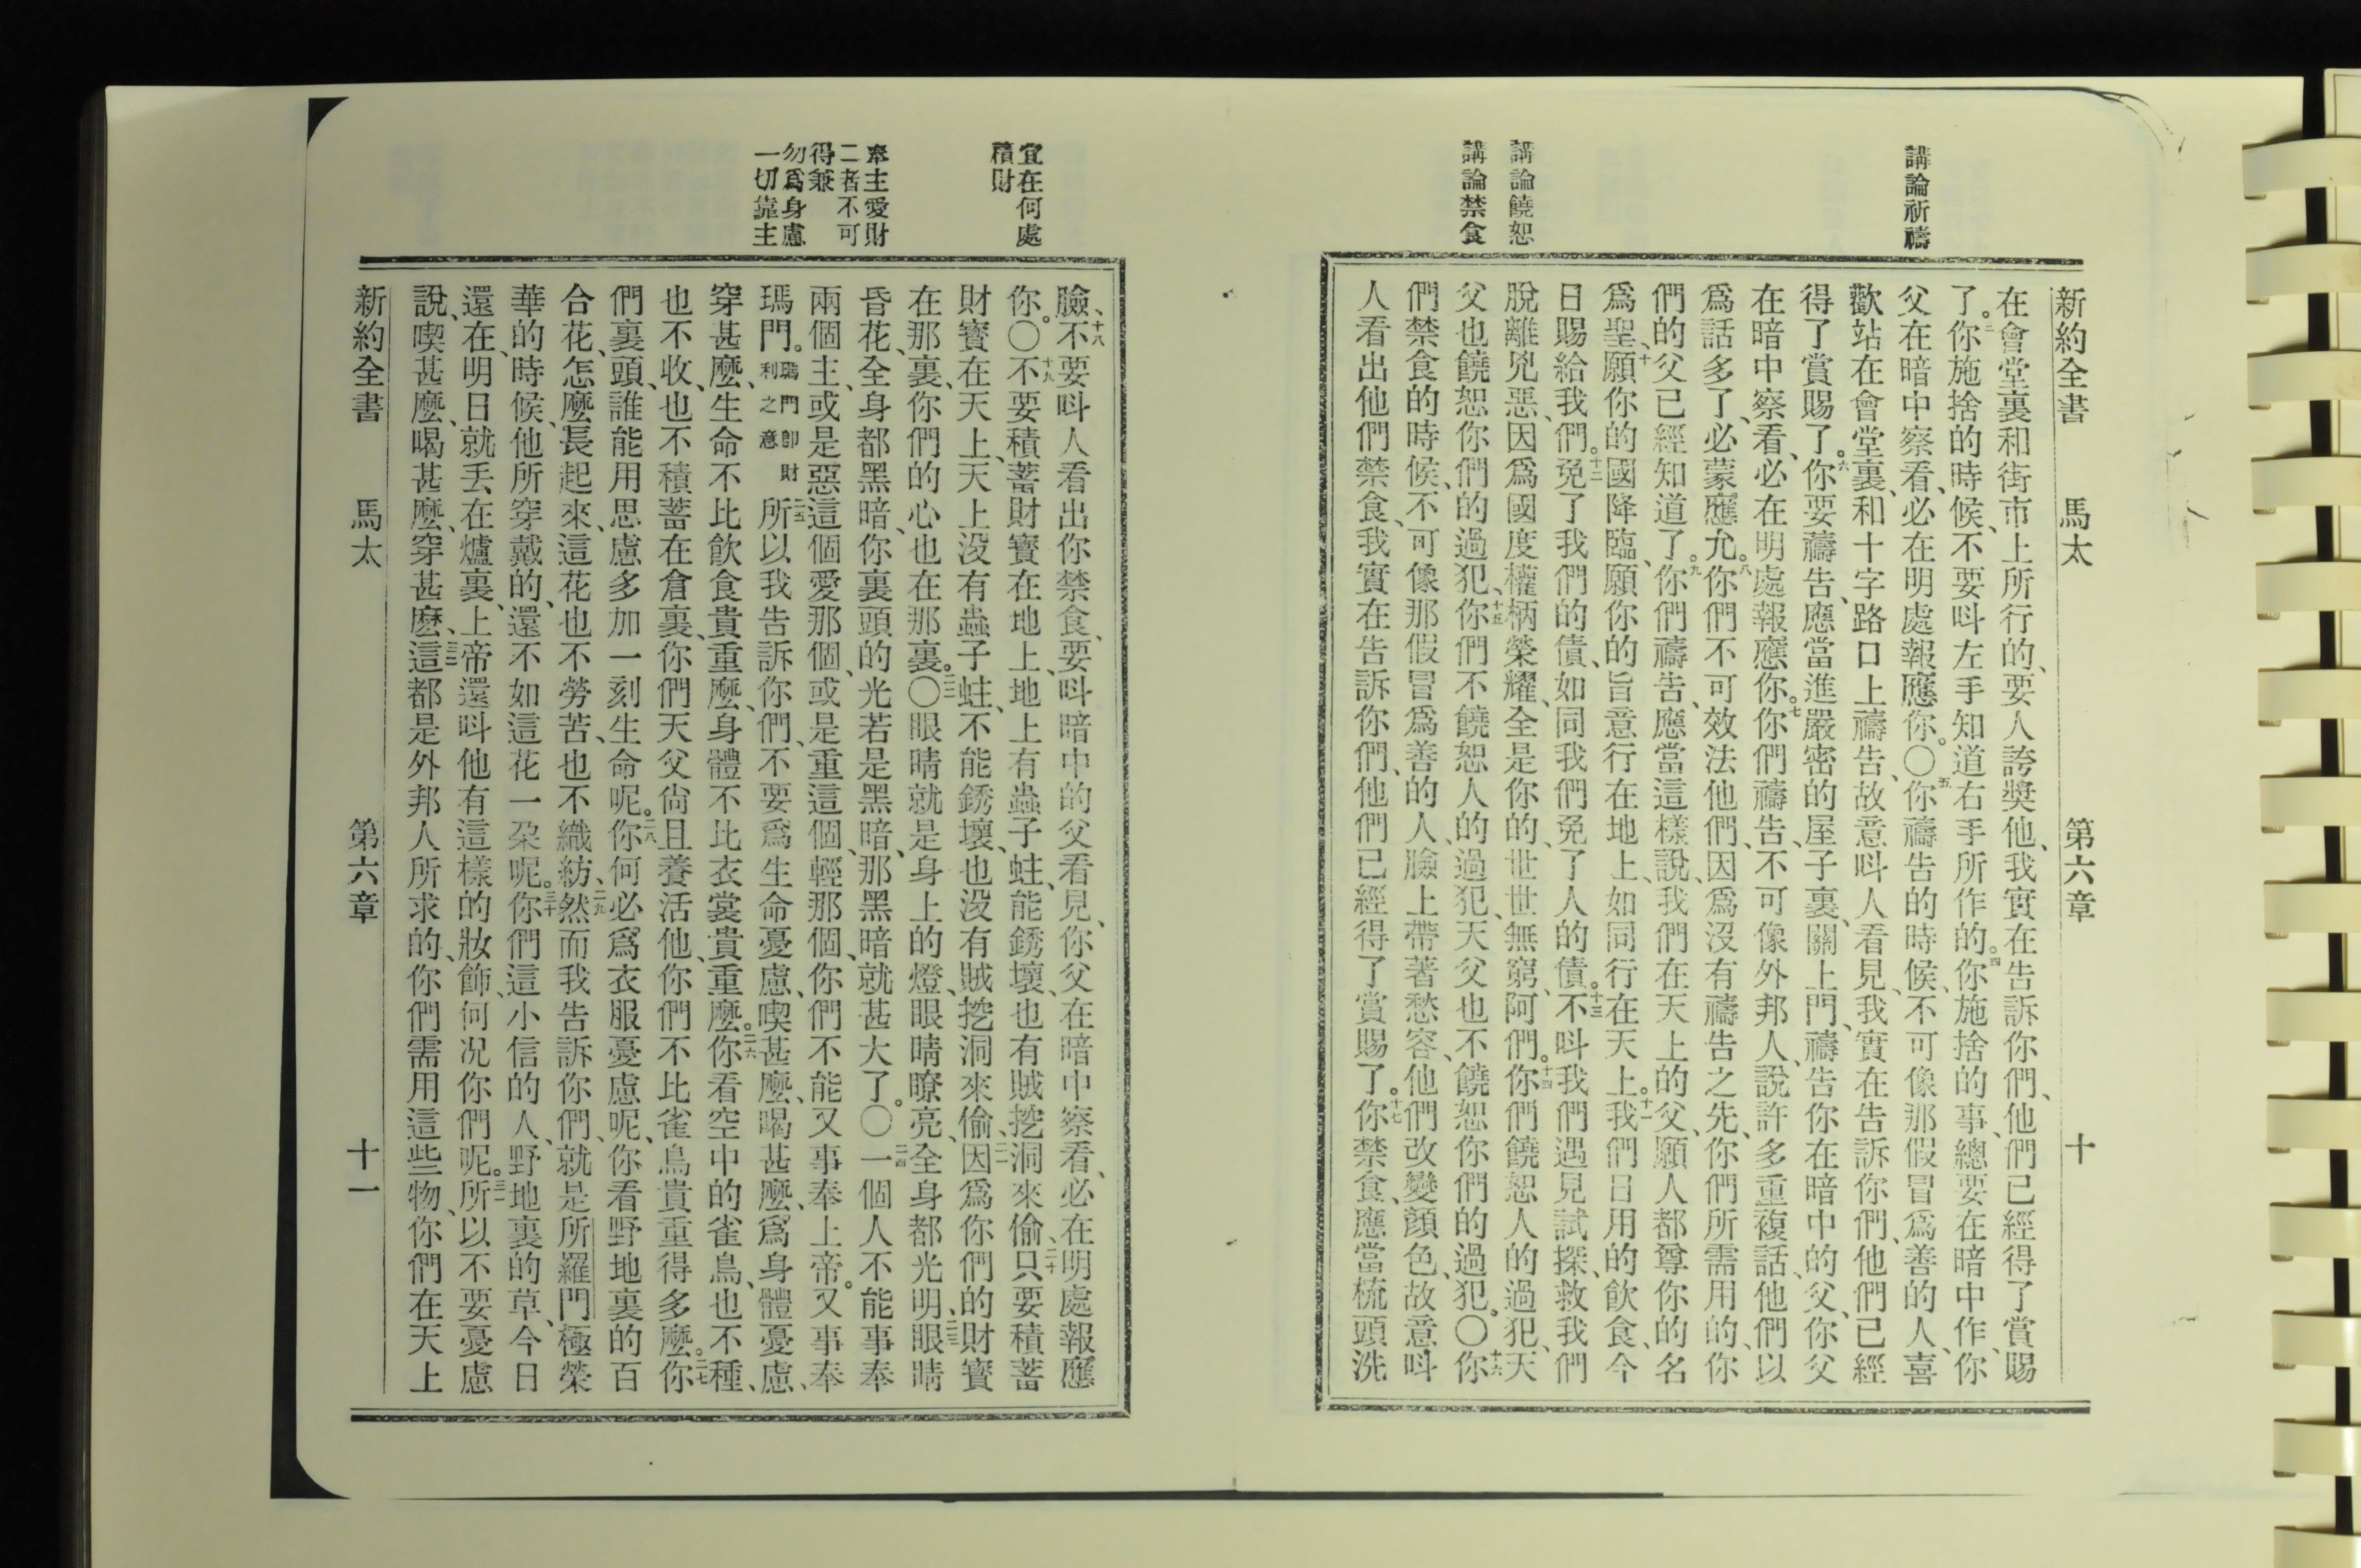 講論祈禱
講論饒恕
講論禁食
新約全書 馬太 第六章 十
在會堂裏和街市上所行的、要人誇獎他、我實在告訴你們、他們已經得了賞賜
了。三你施捨的時候、不要呌左手知道右手所作的。四你施捨的事、總要在暗中作、你
父在暗中察看、必在明處報應你。〇五你禱告的時候、不可像那假冒爲善的人、喜
歡站在會堂裏、和十字路口上禱告、故意呌人看見、我實在告訴你們、他們已經
得了賞賜了。六你要禱告、應當進嚴密的屋子裏、關上門、禱告你在暗中的父、你父
在暗中察看、必在明處報應你。七你們禱告、不可像外邦人、說許多重複話、他們以
爲話多了、必蒙應允。八你們不可效法他們、因爲沒有禱告之先、你們所需用的、你
們的父已經知道了。九你們禱告、應當這樣說、我們在天上的父、願人都尊你的名
爲聖、十願你的國降臨、願你的旨意行在地上、如同行在天上。十一我們日用的飲食、今
日賜給我們。十二免了我們的債、如同我們免了人的債。十三不呌我們遇見試探、救我們
脫離兇惡、因爲國度權柄榮耀、全是你的、世世無窮、阿們。十四你們饒恕人的過犯、天
父也饒恕你們的過犯、十五你們不饒恕人的過犯、天父也不饒恕你們的過犯。〇十六你
們禁食的時候、不可像那假冒爲善的人、臉上帶著愁容、他們改變顔色、故意呌
人看出他們禁食、我實在告訴你們、他們已經得了賞賜了。十七你禁食、應當梳頭洗
宜在何處
積財
奉主愛財
二者不可
得兼
勿爲身慮
一切靠主
臉、十八不要呌人看出你禁食、要呌暗中的父看見、你父在暗中察看、必在明處報應
你。〇十九不要積蓄財寳在地上、地上有蟲子蛀、能銹壞、也有賊挖洞來偷、二十只要積蓄
財寳在天上、天上沒有蟲子蛀、不能銹壞、也沒有賊挖洞來偷、二一因爲你們的財寳
在那裏、你們的心也在那裏。〇二二眼睛就是身上的燈、眼睛瞭亮、全身都光明、二三眼睛
昏花、全身都黑暗、你裏頭的光若是黑暗、那黑暗就甚大了。〇二四一個人不能事奉
兩個主、或是惡這個愛那個、或是重這個、輕那個、你們不能又事奉上帝。又事奉
瑪門。瑪門卽財利之意二五所以我告訴你們、不要爲生命憂慮、喫甚麼、喝甚麼、爲身體憂慮、
穿甚麼、生命不比飲食貴重麼、身體不比衣裳貴重麼。二六你看空中的雀鳥、也不種、
也不收、也不積蓄在倉裏、你們天父尙且養活他、你們不比雀鳥貴重得多麼。二七你
們裏頭、誰能用思慮多加一刻生命呢。二八你何必爲衣服憂慮呢、你看野地裏的百
合花、怎麼長起來、這花也不勞苦、也不織紡、二九然而我告訴你們、就是所羅門極榮
華的時候、他所穿戴的、還不如這花一朶呢。三十你們這小信的人、野地裏的草、今日
還在、明日就丢在爐裏、上帝還呌他有這樣的妝飾、何况你們呢。三一所以不要憂慮
說、喫甚麼、喝甚麼、穿甚麽、三二這都是外邦人所求的、你們需用這些物、你們在天上
新約全書 馬太 第六章 十一